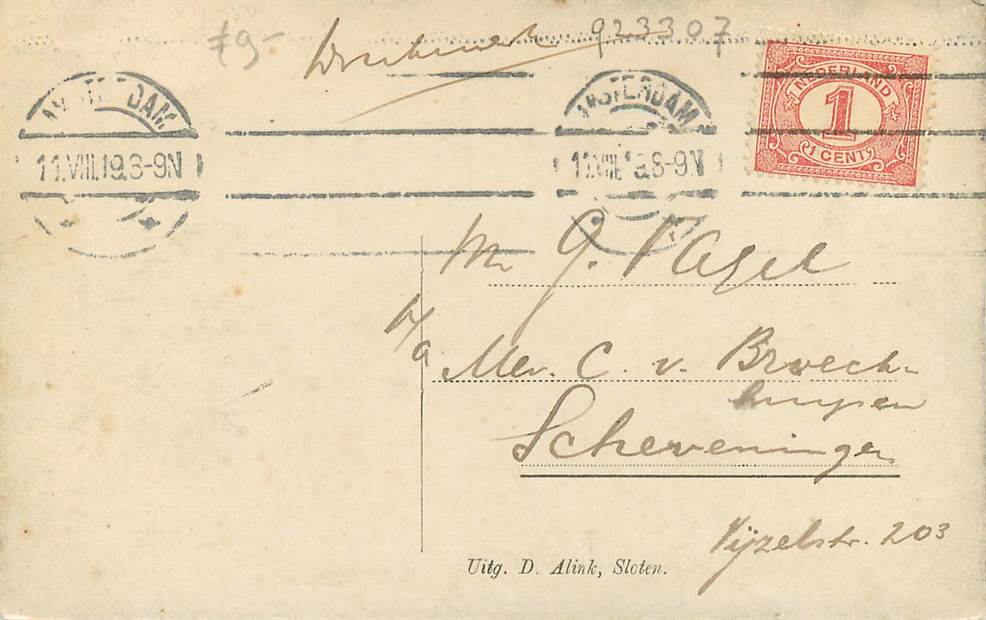 f 9-
Drukwerk 923307
AMSTERDAM
11.VIII.19 8-9N
AMSTERDAM
11.VIII.19 8-9N
NEDERLAND
1
1 CENT
Mr G. Nagel
p/a Mev. C. v. Broeck-
huysen
Scheveningen
Vijzelstr. 203
Uitg. D. Alink, Sloten.